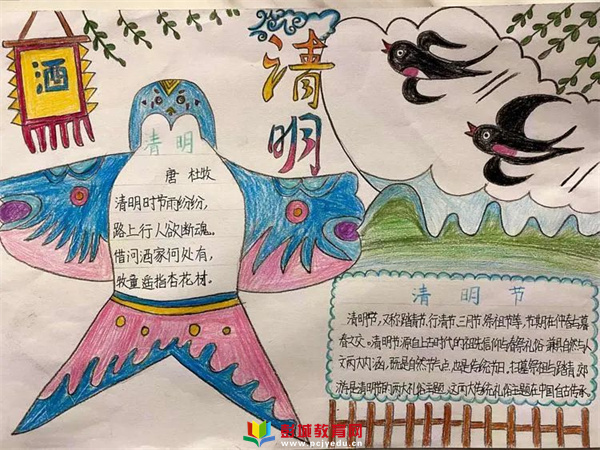 酒
清明
清明
唐 杜牧
清明时节雨纷纷,
路上行人欲断魂。
借问酒家何处有,
牧童遥指杏花材。
清明节
清明节,又称踏青节、行清节、三月节、祭祖节等,节期在仲春与暮
春之交。清明节源自上古时代的祖先信仰与春祭礼俗,兼具自然与人
文两大内涵,既是自然节气点,也是传统节日,扫墓祭祖与踏青郊
游是清明节的两大礼俗主题,这两大传统礼俗主题在中国自古传承
教育网